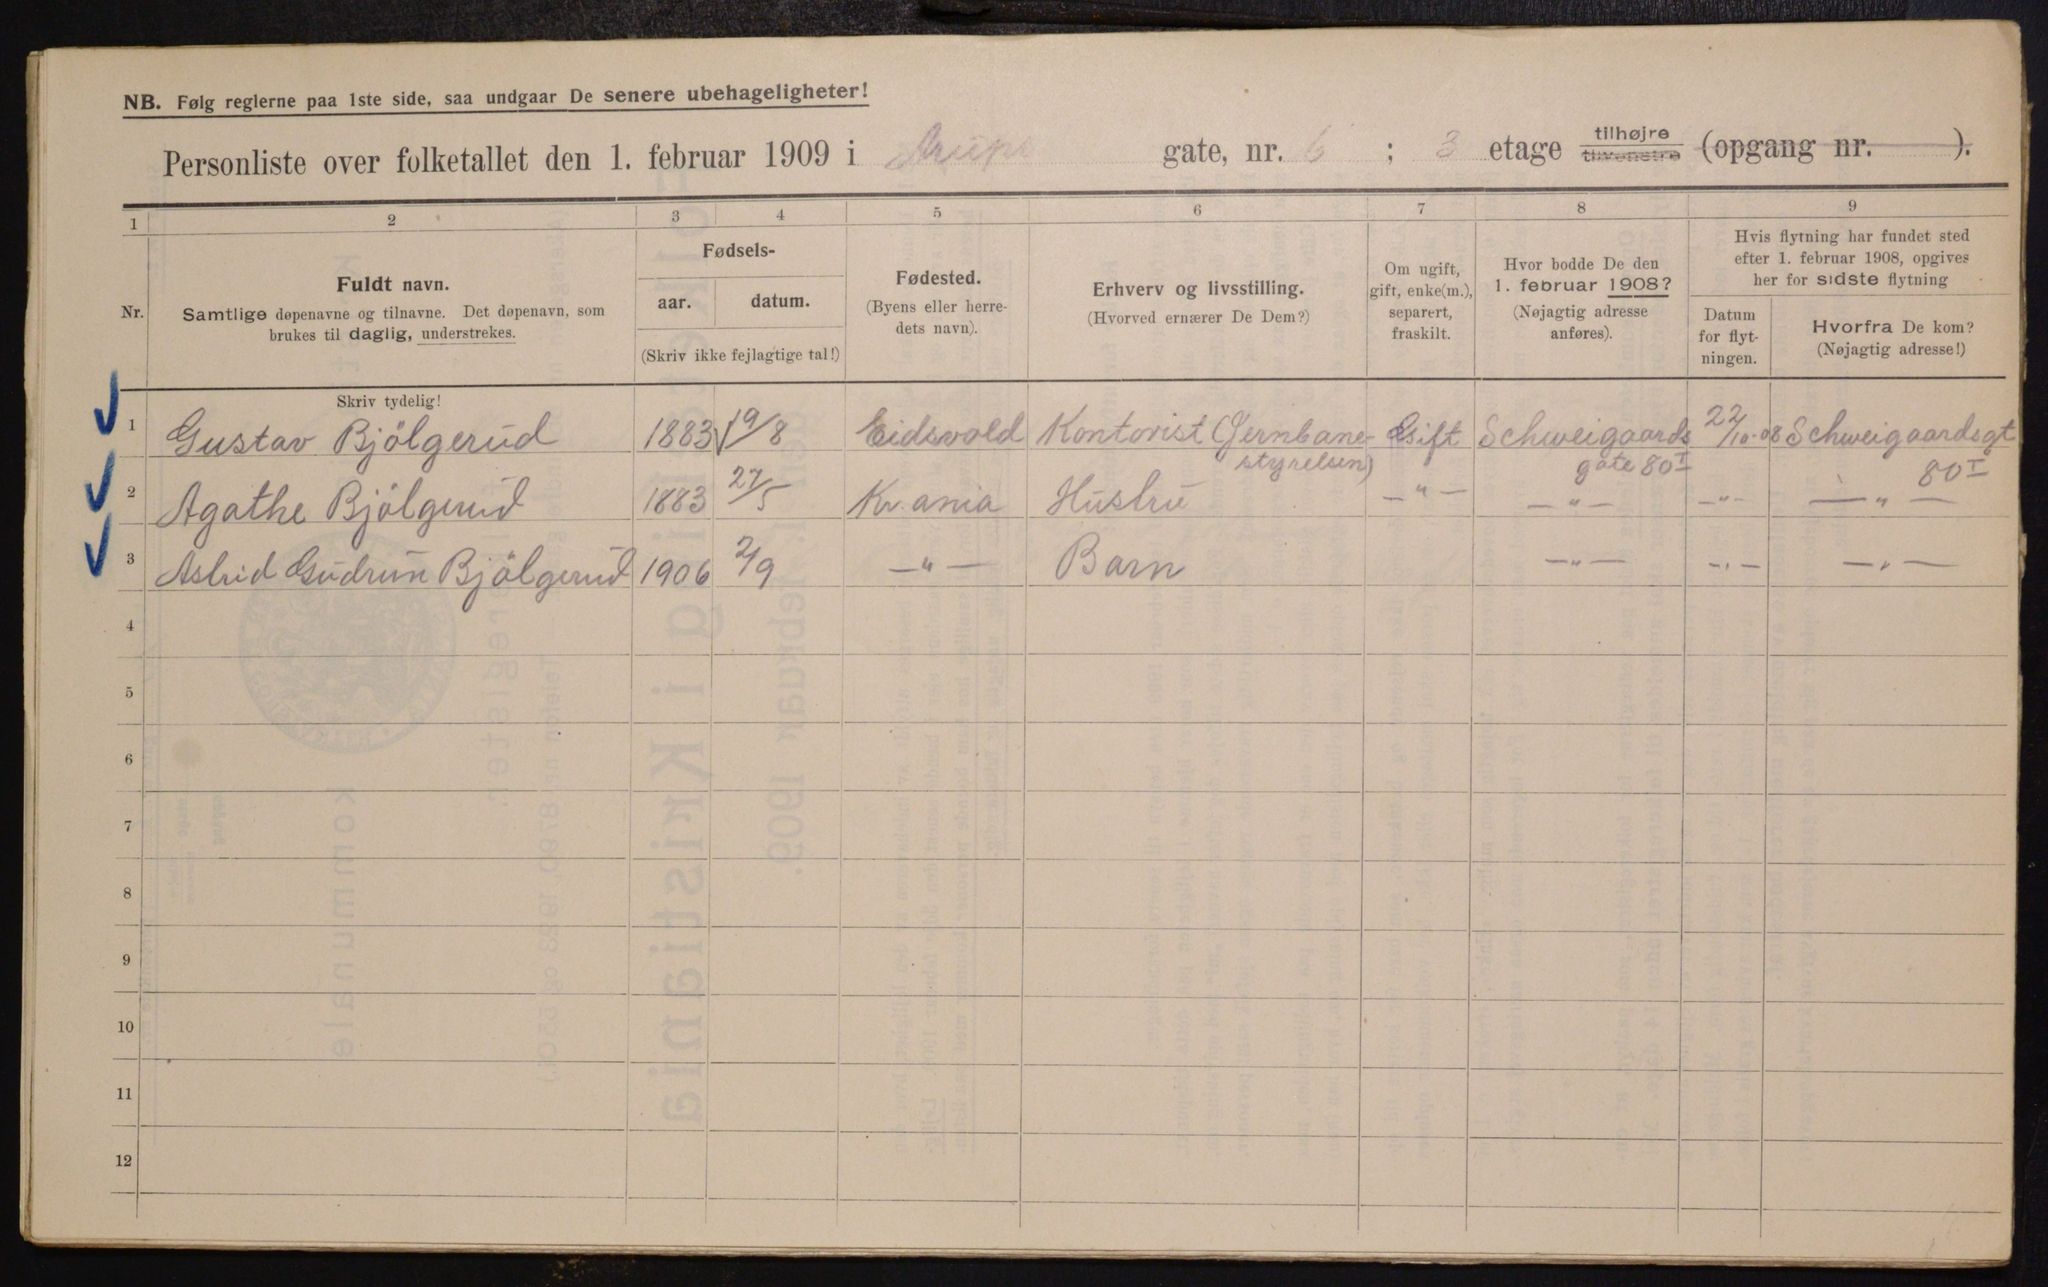 NB. Følg reglerne paa 1ste side, saa undgaar De senere ubehageligheter!
Personliste over folketallet den 1. februar 1909 i Arups gate, nr. 6 ; 3 etage tilhøjre tilvenstre (opgang nr. ).
1 2 3 4 5 6 7 8 9
Nr.
Fuldt navn.
Samtlige døpenavne og tilnavne. Det døpenavn, som
brukes til daglig, understrekes.
Skriv tydelig!
Fødsels-
aar. datum.
(Skriv ikke fejlagtige tal!)
Fødested.
(Byens eller herre-
dets navn).
Erhverv og livsstilling.
(Hvorved ernærer De Dem?)
Om ugift,
gift, enke(m.),
separert,
fraskilt.
Hvor bodde De den
1. februar 1908?
(Nøjagtig adresse
anføres).
Hvis flytning har fundet sted
efter 1. februar 1908, opgives
her for sidste flytning
Datum
for flyt-
ningen.
Hvorfra De kom?
(Nøjagtig adresse!)
1 Gustav Bjölgerud 1883 19/8 Eidsvold Kontorist (Jernbane- Gift Schweigaards 22/10-08 Schweigaardsgt
styrelsen) gate 80 I 80 I
2 Agathe Bjölgerud 1883 27/5 Kr.ania Hustru — " — — " — — " — — " —
3 Astrid Gudrun Bjölgerud 1906 2/9 — " — Barn — " — — " — — " —
4
5
6
7
8
9
10
11
12